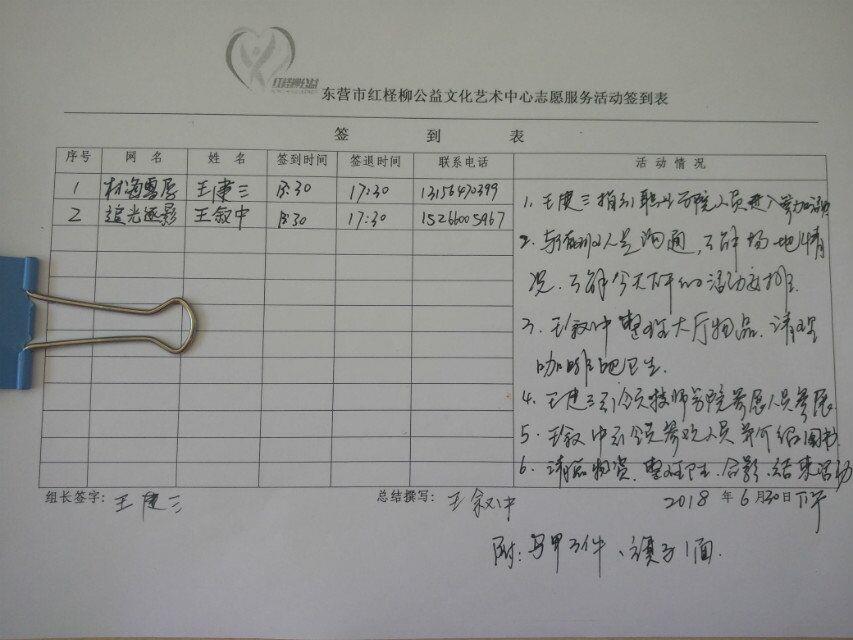 红柽柳公益
东营市红柽柳公益文化艺术中心志愿服务活动签到表
签 到 表
序号 网 名 姓 名 签到时间 签退时间 联系电话 活 动 情 况
1 王建三 13:30 17:30 13156470399
2 追光逐影 王叙中 13:30 17:30 15266005967
1、王建三指引职业学院人员进入
2、人员沟通,了解场地情
况、了解今天下午的活动安排
3、王叙中整理大厅物品、清理
咖啡吧卫生.
4、王建三引领技师学院参展人员参展
5、王叙中引领参观人员并介绍图书
6、清点物资、整理卫生、合影、结束活动
组长签字: 王建三 总结撰写: 王叙中 2018 年 6 月 30 日下午
附: 马甲 件、镜子1面.